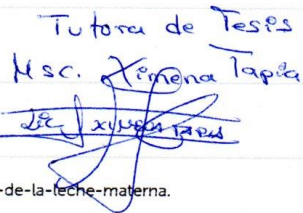 Tutora de Tesis
Msc. Ximena Tapia
Lic Ximena Tapia
-de-la-leche-materna.